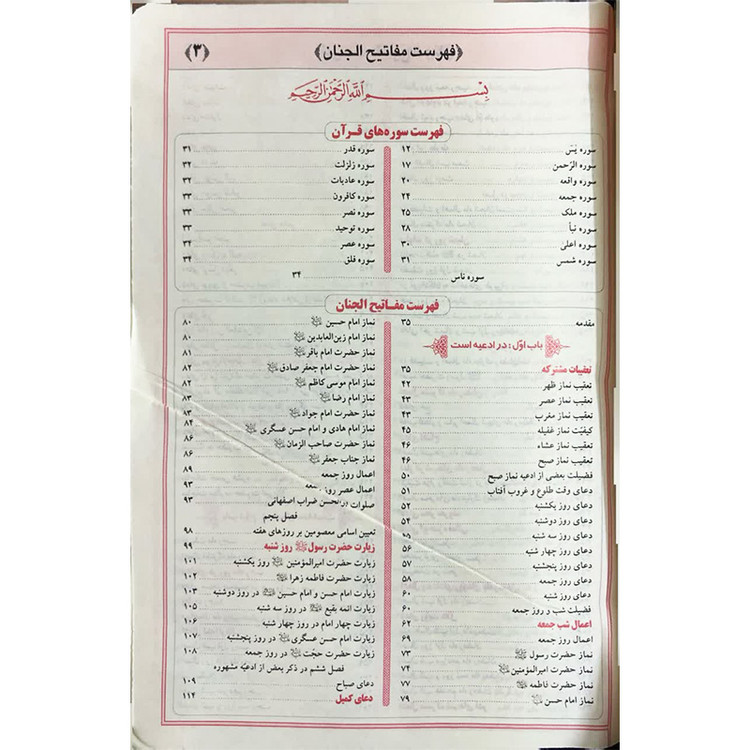 ﴿فهرست مفاتیح الجنان﴾
﴿۳﴾
بسم الله الرحمن الرحیم
فهرست سوره‌های قرآن
سوره یس ۱۲
سوره الرّحمن ۱۷
سوره واقعه ۲۰
سوره جمعه ۲۴
سوره ملک ۲۵
سوره نبأ ۲۸
سوره اعلیٰ ۳۰
سوره شمس ۳۱
سوره قدر ۳۱
سوره زلزلت ۳۲
سوره عادیات ۳۲
سوره کافرون ۳۳
سوره نصر ۳۳
سوره توحید ۳۳
سوره عصر ۳۴
سوره فلق ۳۴
سوره ناس ۳۴
فهرست مفاتیح الجنان
مقدمه ۳۵
باب اوّل: در ادعیه است
تعقیبات مشترکه ۳۵
تعقیب نماز ظهر ۴۲
تعقیب نماز عصر ۴۳
تعقیب نماز مغرب ۴۳
کیفیّت نماز غفیله ۴۵
تعقیب نماز عشاء ۴۶
تعقیب نماز صبح ۴۶
فضیلت بعضی از ادعیه نماز صبح ۵۰
دعای وقت طلوع و غروب آفتاب ۵۱
دعای روز یکشنبه ۵۲
دعای روز دوشنبه ۵۴
دعای روز سه شنبه
دعای روز چهار شنبه ۵۶
دعای روز پنجشنبه ۵۷
دعای روز جمعه ۵۸
دعای روز شنبه ۶۰
فضیلت شب و روز جمعه ۶۰
اعمال شب جمعه ۶۲
اعمال روز جمعه ۶۹
نماز حضرت رسول ۷۳
نماز حضرت امیرالمؤمنین ۷۴
نماز حضرت فاطمه ۷۷
نماز امام حسن ۷۹
نماز امام حسین ۸۰
نماز امام زین‌العابدین ۸۰
نماز حضرت امام باقر ۸۱
نماز حضرت امام جعفر صادق ۸۲
نماز امام موسی کاظم ۸۲
نماز امام رضا ۸۳
نماز حضرت امام جواد ۸۳
نماز امام هادی و امام حسن عسگری ۸۴
نماز حضرت صاحب الزمان ۸۶
نماز جناب جعفر ۸۶
اعمال روز جمعه ۸۹
اعمال عصر روز جمعه ۹۳
صلوات ابوالحسن ضراب اصفهانی ۹۳
فصل پنجم
تعیین اسامی معصومین بر روزهای هفته ۹۸
زیارت حضرت رسول روز شنبه ۹۹
زیارت حضرت امیرالمؤمنین روز یکشنبه ۱۰۱
زیارت حضرت فاطمه زهرا ۱۰۲
زیارت امام حسن و امام حسین در روز دوشنبه ۱۰۳
زیارت ائمه بقیع در روز سه شنبه ۱۰۵
زیارت چهار امام در روز چهار شنبه ۱۰۶
زیارت امام حسن عسگری در روز پنجشنبه ۱۰۷
زیارت حضرت حجّت در روز جمعه ۱۰۸
فصل ششم در ذکر بعض از ادعیّه مشهوره
دعای صباح ۱۰۹
دعای کمیل ۱۱۲